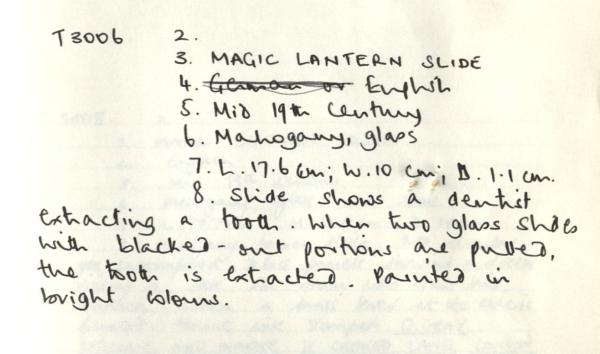 T3006 2.
3. MAGIC LANTERN SLIDE
4. German or English
5. Mid 19th Century
6. Mahogany, glass
7. L. 17.6 cm; W. 10 cm; D. 1.1 cm.
8. Slide shows a dentist
extracting a tooth. When two glass slides
with blacked-out portions are pulled,
the tooth is extracted. Painted in
bright colours.